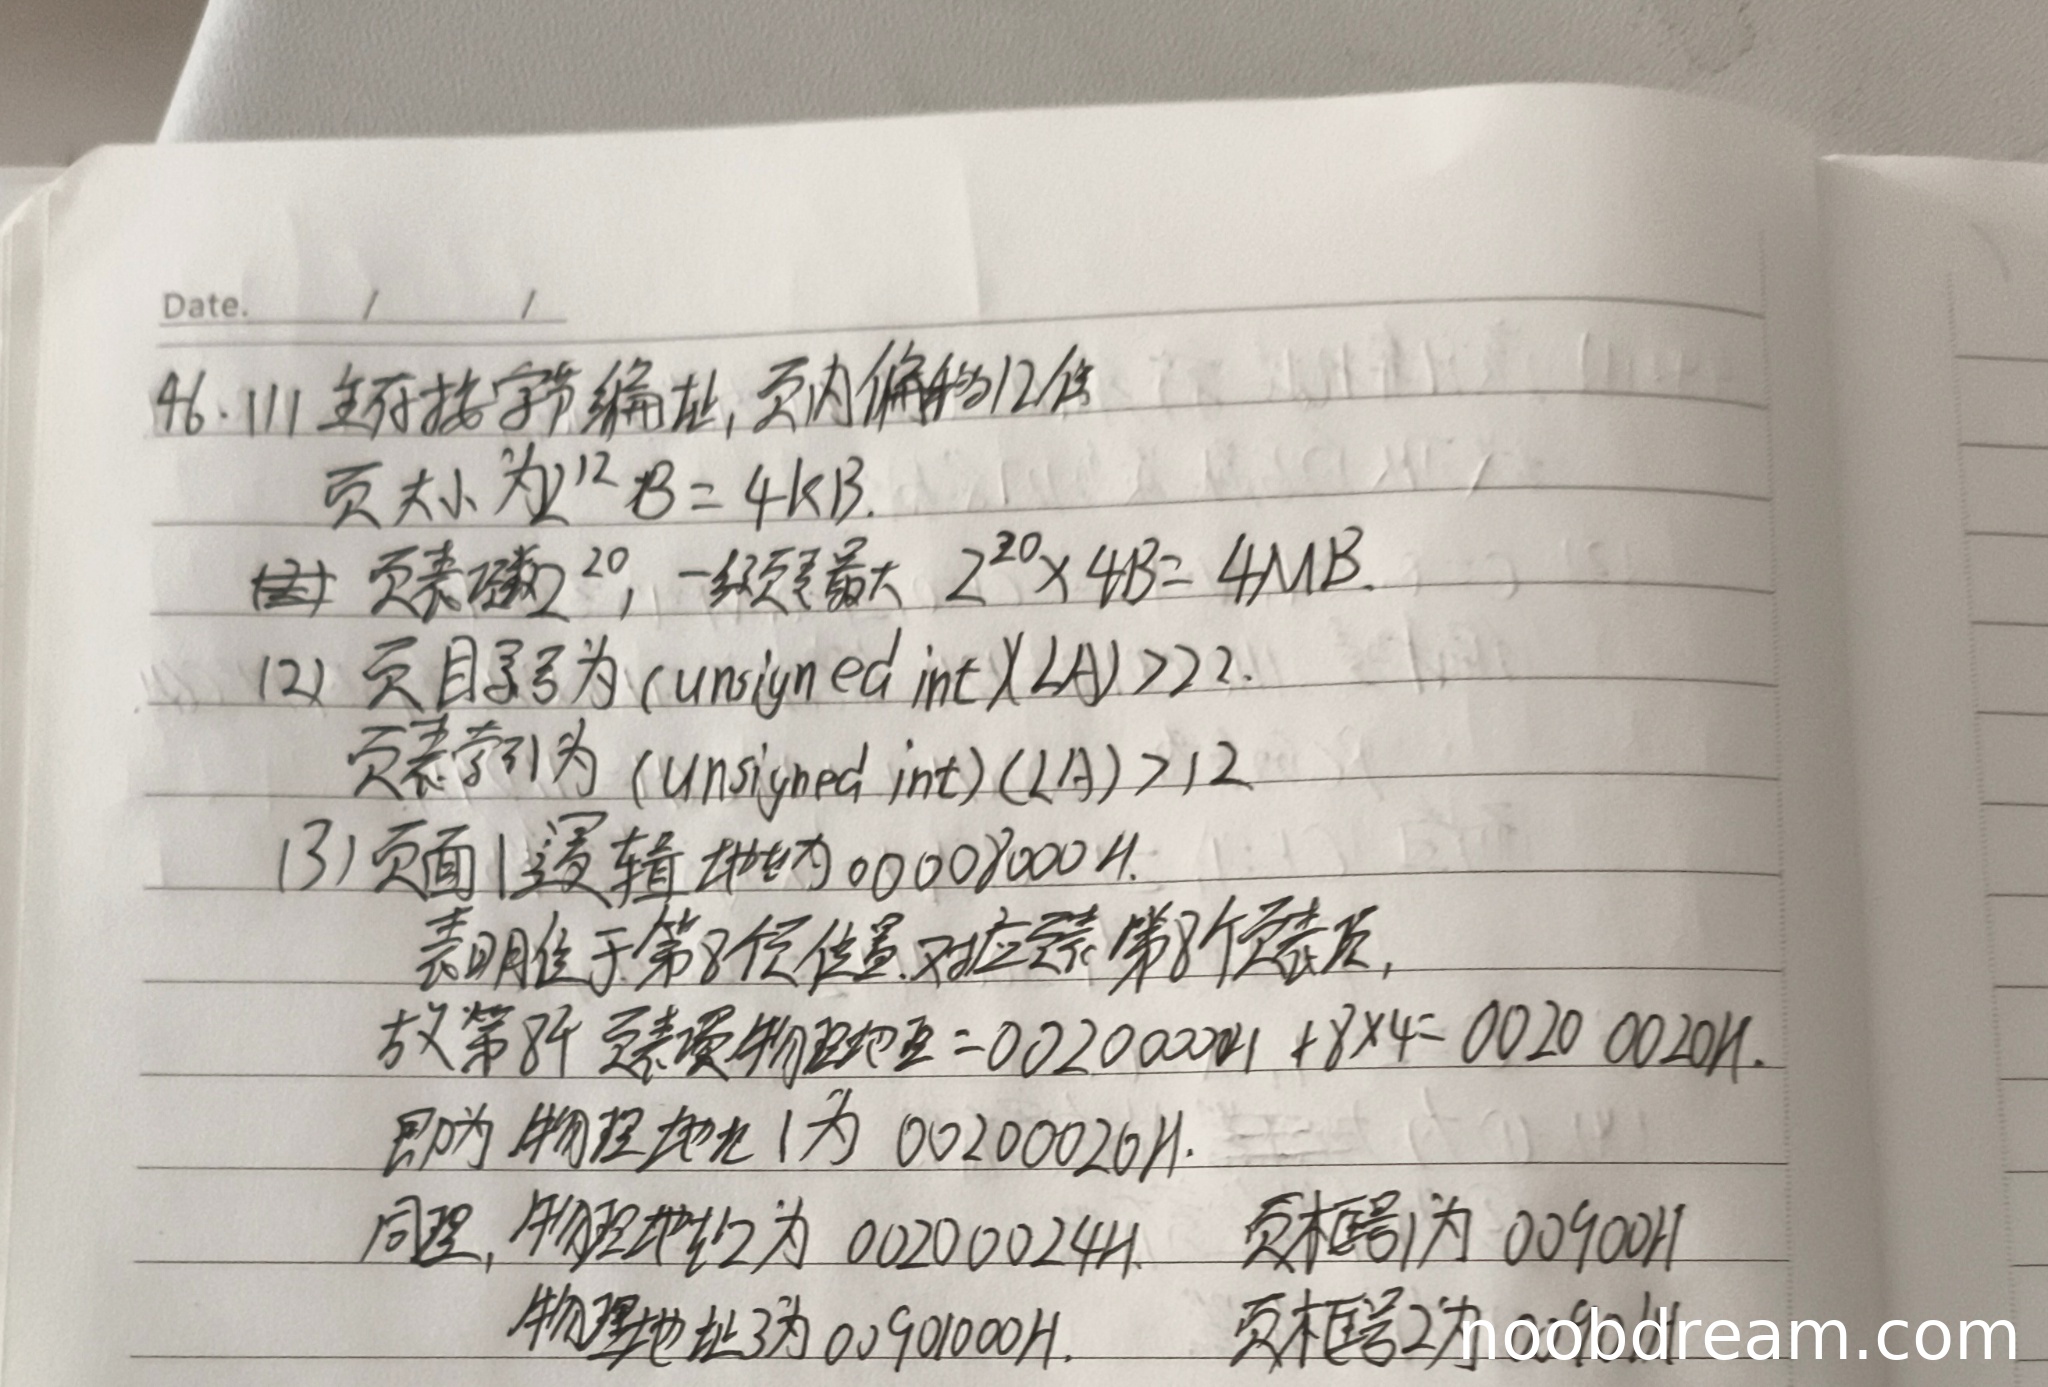 Date. / /
46.(1) 主存按字节编址,页内偏移为12位
页大小为2¹²B=4KB.
页表项数2²⁰,一级页表最大 2²⁰×4B=4MB.
(2) 页目录号为(unsigned int)(LA)>22.
页表索引为 (unsigned int)(LA)>12
(3) 页面1逻辑地址为00008000H.
表明位于第8个页位置.对应页表第8个页表项,
故第8个页表项物理地址=00200000H+8×4=0020 0020H.
即为物理地址1为 00200020H.
同理,物理地址2为 00200024H. 页框号1为 00900H
物理地址3为00901000H. 页框号2为00901H
noobdream.com